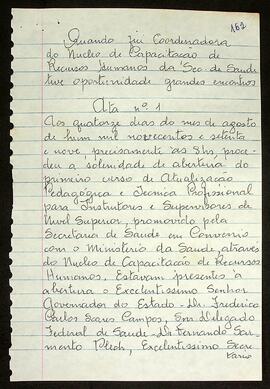 162
Quando fui Coordenadora
do Nucleo de Capacitação de
Recursos Humanos da Sec. de Saude
tive oportunidade grandes encontros
Ata nº 1
Aos quatorze dias do mes de agosto
de hum mil novecentos e setenta
e nove, precisamente às 8hs, proce-
deu a solenidade de abertura do
primeiro curso de Atualização
Pedagógica e Tecnica Profissional
para Instrutores e Supervisores de
Nivel Superior, promovido pela
Secretaria de Saude em Convenio
com o Ministério da Saude, através
do Nucleo de Capacitação de Recursos
Humanos. Estavam presentes à
abertura o Excelentissimo Senhor
Governador do Estado - Dr. Frederico
Carlos Soares Campos, Snr. Delegado
Federal de Saude - Dr. Fernando Sar-
mento, Excelentissimo Secre
tario